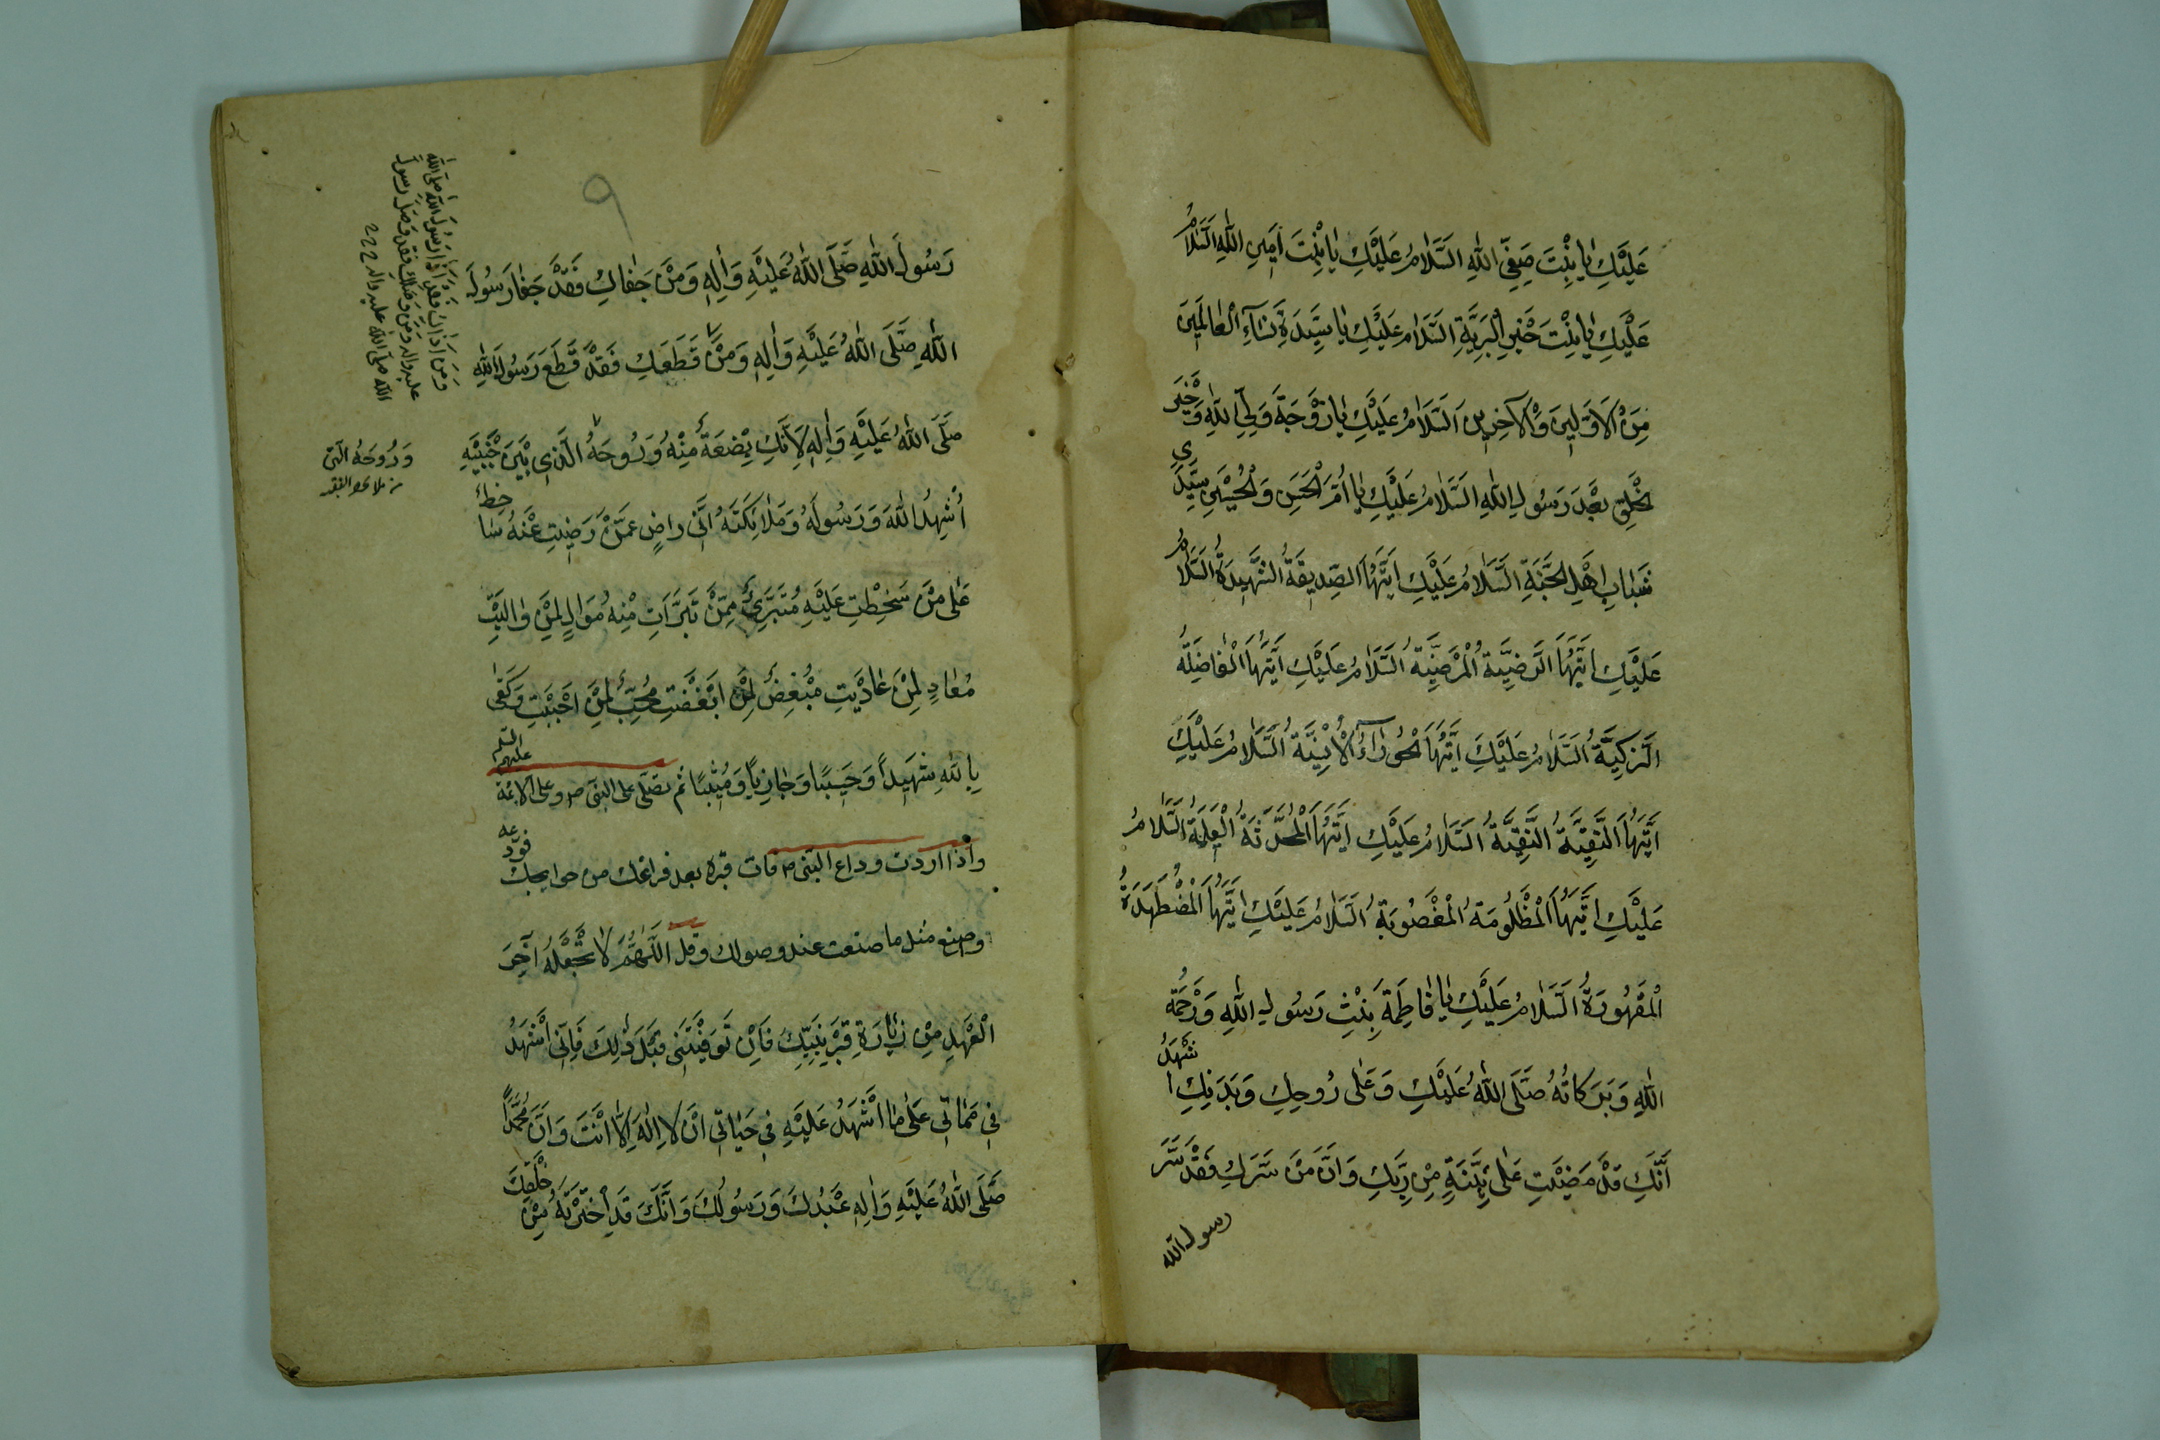 عَلَيْكِ يَا بِنْتَ صَفِيِّ اللهِ السَّلَامُ عَلَيْكِ يَا بِنْتَ اَمِينِ اللهِ السَّلَامُ
عَلَيْكِ يَا بِنْتَ خَيْرِ الْبَرِيَّةِ السَّلَامُ عَلَيْكِ يَا سَيِّدَةَ نِسَآءِ الْعَالَمِينَ
مِنَ الْاَوَّلِينَ وَالْآخِرِينَ اَلسَّلَامُ عَلَيْكِ يَا زَوْجَةَ وَلِيِّ اللهِ وَخَيْرِ
الْخَلْقِ بَعْدَ رَسُولِ اللهِ السَّلَامُ عَلَيْكِ يَا اُمَّ الْحَسَنِ وَالْحُسَيْنِ سَيِّدَي
شَبَابِ اَهْلِ الْجَنَّةِ السَّلَامُ عَلَيْكِ اَيَّتُهَا الصِّدِّيقَةُ الشَّهِيدَةُ السَّلَامُ
عَلَيْكِ اَيَّتُهَا الرَّضِيَّةُ الْمَرْضِيَّةُ السَّلَامُ عَلَيْكِ اَيَّتُهَا الْفَاضِلَةُ
الزَّكِيَّةُ السَّلَامُ عَلَيْكِ اَيَّتُهَا الْحُوْرَآءُ الْاِنْسِيَّةُ السَّلَامُ عَلَيْكِ
اَيَّتُهَا التَّقِيَّةُ النَّقِيَّةُ السَّلَامُ عَلَيْكِ اَيَّتُهَا الْمُحَدَّثَةُ الْعَلِيمَةُ السَّلَامُ
عَلَيْكِ اَيَّتُهَا الْمَظْلُومَةُ الْمَغْصُوبَةُ السَّلَامُ عَلَيْكِ اَيَّتُهَا الْمُضْطَهَدَةُ
الْمَقْهُورَةُ السَّلَامُ عَلَيْكِ يَا فَاطِمَةُ بِنْتِ رَسُولِ اللهِ وَرَحْمَةُ
اللهِ وَبَرَكَاتُهُ صَلَّى اللهُ عَلَيْكِ وَعَلَى رُوحِكِ وَبَدَنِكِ اَشْهَدُ
اَنَّكِ قَدْ مَضَيْتِ عَلَى بَيِّنَةٍ مِنْ رَبِّكِ وَاَنَّ مَنْ سَرَّكِ فَقَدْ سَرَّ
رسول الله
٩
رَسُولَ اللهِ صَلَّى اللهُ عَلَيْهِ وَاٰلِهِ وَمَنْ جَفَاكِ فَقَدْ جَفَا رَسُولَ
اللهِ صَلَّى اللهُ عَلَيْهِ وَاٰلِهِ وَمَنْ قَطَعَكِ فَقَدْ قَطَعَ رَسُولَ اللهِ
صَلَّى اللهُ عَلَيْهِ وَاٰلِهِ لِاَنَّكِ بِضْعَةٌ مِنْهُ وَرُوحُهُ الَّذِي بَيْنَ جَنْبَيْهِ
أُشْهِدُ اللهَ وَرَسُولَهُ وَمَلَائِكَتَهُ اَنِّي رَاضٍ عَمَّنْ رَضِيتِ عَنْهُ سَاخِطٌ
عَلَى مَنْ سَخِطْتِ عَلَيْهِ مُتَبَرِّئٌ مِمَّنْ تَبَرَّأْتِ مِنْهُ مُوَالٍ لِمَنْ وَالَيْتِ
مُعَادٍ لِمَنْ عَادَيْتِ مُبْغِضٌ لِمَنْ اَبْغَضْتِ مُحِبٌّ لِمَنْ اَحْبَبْتِ وَكَفَى
بِاللهِ شَهِيداً وَحَسِيبًا وَجَازِيًا وَمُثِيبًا ثم تصلى على النبى ص وعلى الائمة عليهم السلم
واذا اردت وداع النبى ص فات قبره بعد فراغك من حوايجك فودعه
واصنع مثل ما صنعت عند وصولك وقل اَللَّهُمَّ لَا تَجْعَلْهُ آخِرَ
الْعَهْدِ مِنْ زِيَارَةِ قَبْرِ نَبِيِّكَ فَاِنْ تَوَفَّيْتَنِي قَبْلَ ذٰلِكَ فَاِنِّي اَشْهَدُ
فِي مَمَاتِي عَلَى مَا اَشْهَدُ عَلَيْهِ فِي حَيَاتِي اَنْ لَا اِلٰهَ اِلَّا اَنْتَ وَاَنَّ مُحَمَّداً
صَلَّى اللهُ عَلَيْهِ وَاٰلِهِ عَبْدُكَ وَرَسُولُكَ وَاَنَّكَ قَدِ اخْتَرْتَهُ مِنْ خَلْقِكَ
وَمَنْ اٰذَاكِ فَقَدْ اٰذَا رَسُولَ اللهِ صلى الله
عليه واله ومن وصلك فقد وصل رسول
الله صلى الله عليه واله
وَرُوحُهُ الَّتِي